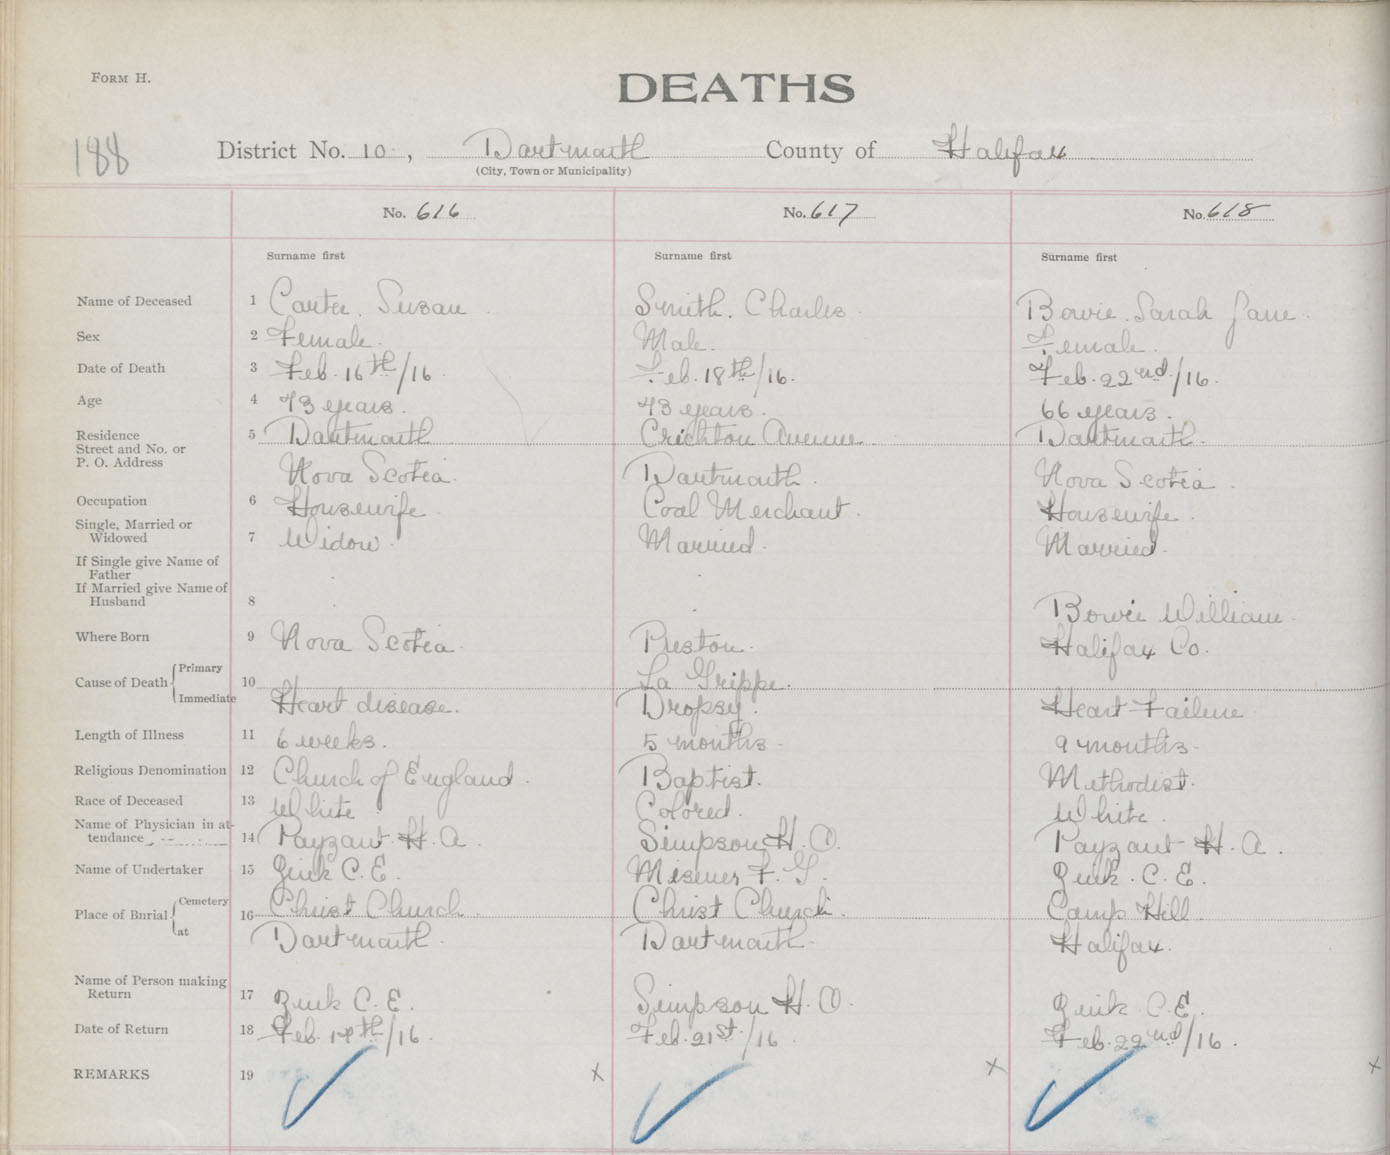 FORM H.
DEATHS
188
District No. 10, Dartmouth County of Halifax
(City, Town or Municipality)
No. 616 No. 617 No. 618
Surname first Surname first Surname first
Name of Deceased 1 Carter, Susan Smith, Charles Bowie, Sarah Jane
Sex 2 Female. Male. Female.
Date of Death 3 Feb. 16th/16. Feb. 18th/16. Feb. 22nd/16.
Age 4 73 years. 43 years. 66 years.
Residence 5 Dartmouth Crichton Avenue Dartmouth.
Street and No. or
P. O. Address Nova Scotia. Dartmouth. Nova Scotia.
Occupation 6 Housewife. Coal Merchant. Housewife.
Single, Married or
Widowed 7 Widow. Married. Married.
If Single give Name of
Father
If Married give Name of
Husband 8 Bowie William.
Where Born 9 Nova Scotia. Preston. Halifax Co.
Cause of Death Primary 10 La Grippe.
Immediate Heart disease. Dropsy. Heart Failure
Length of Illness 11 6 weeks. 5 months. 9 months.
Religious Denomination 12 Church of England. Baptist. Methodist.
Race of Deceased 13 White Colored. White.
Name of Physician in at-
tendance 14 Payzant H. A. Simpson H. O. Payzant H. A.
Name of Undertaker 15 Zink C. E. Misener F. G. Zink. C. E.
Place of Burial Cemetery 16 Christ Church. Christ Church. Camp Hill
at Dartmouth. Dartmouth. Halifax.
Name of Person making
Return 17 Zink C. E. Simpson H. O. Zink C. E.
Date of Return 18 Feb. 17th/16. Feb. 21st/16. Feb. 22nd/16.
REMARKS 19 x x x